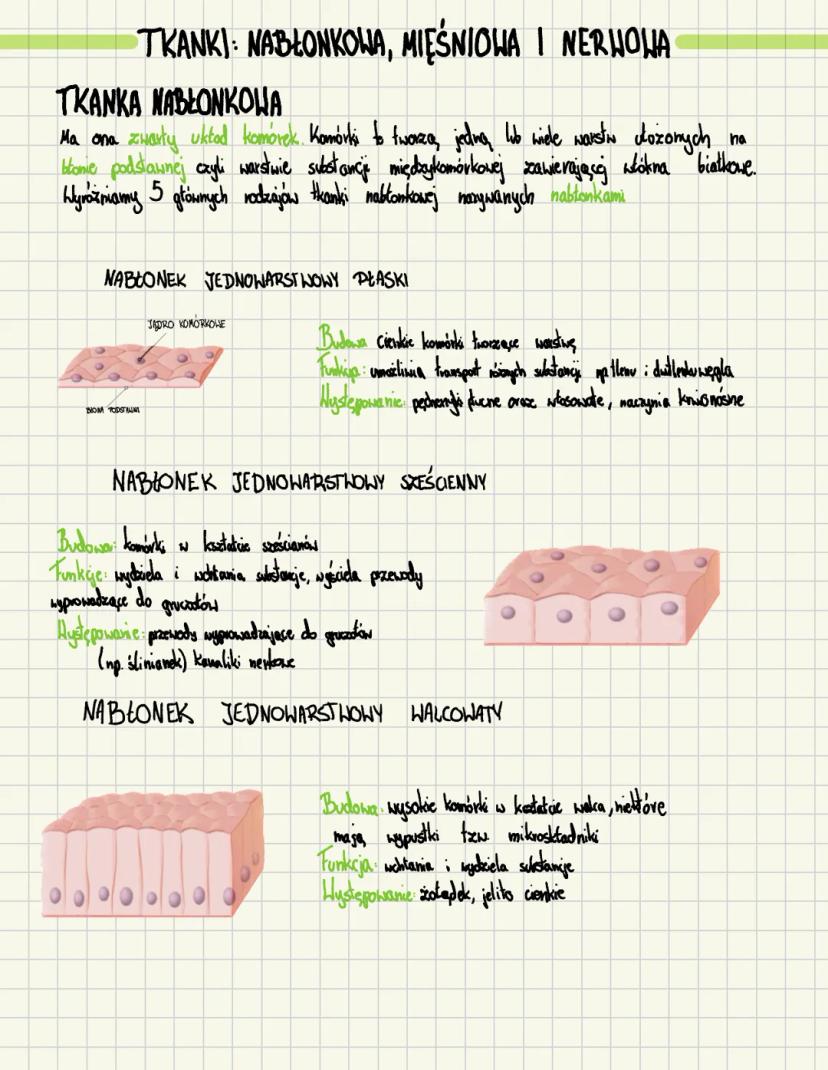 TKANKI: NABŁONKOWA, MIĘŚNIOWA I NERWOWA
TKANKA NABŁONKOWA
Ma ona zwarty układ komórek. Komórki te tworzą, jedną lub wiele warstw ułożonych na
błonie podstawnej czyli warstwie substancji międzykomórkowej zawierającej włókna białkowe.
Wyróżniamy 5 głównych rodzajów tkanki nabłonkowej nazywanych nabłonkami
NABŁONEK JEDNOWARSTWOWY PŁASKI
JĄDRO KOMÓRKOWE
Budowa cienkie komórki tworzące warstwę
Funkcja: umożliwia transport różnych substancji np tlenu i dwutlenku węgla
Występowanie: pęcherzyki płucne oraz włosowate, naczynia krwionośne
BŁONA PODSTAWNA
NABŁONEK JEDNOWARSTWOWY SZEŚCIENNY
Budowa: komórki w kształcie sześcianów
Funkcje: wydziela i wchłania substancje, wyściela przewody
wyprowadzące do gruczołów
Występowanie: przewody wyprowadzające do gruczołów
(np. ślinianek) kanaliki nerkowe
NABŁONEK JEDNOWARSTWOWY WALCOWATY
Budowa: wysokie komórki w kształcie walca, niektóre
mają wypustki tzw mikroskładniki
Funkcja: wchłania i wydziela substancje
Występowanie: żołądek, jelito cienkie